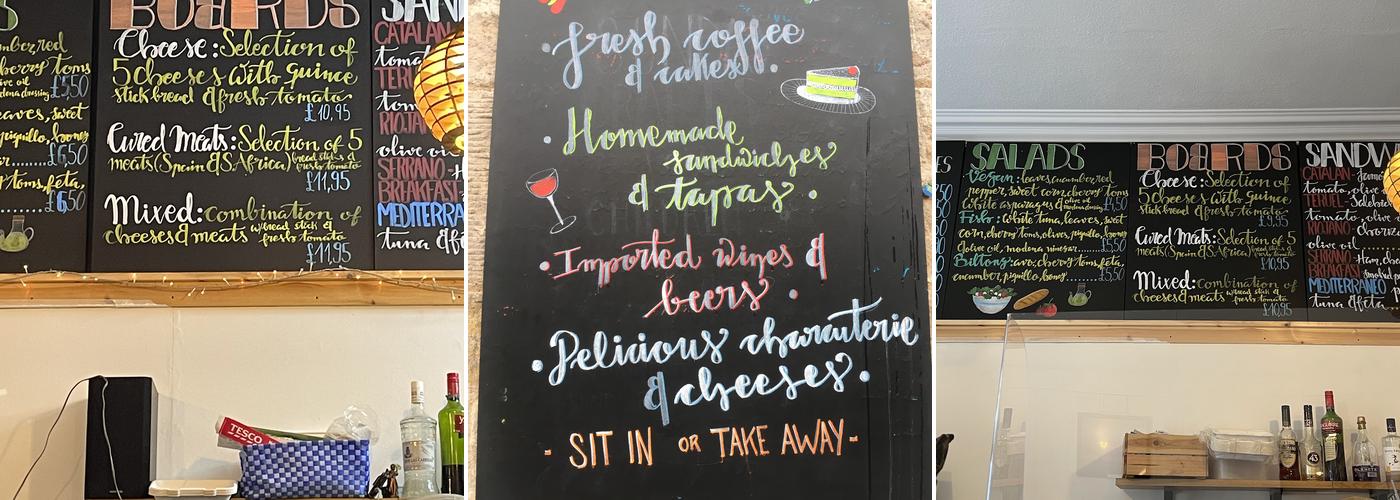 BOARDS
Cheese: Selection of
5 cheeses with quince
stick bread & fresh tomato
£10,95
Cured Meats: Selection of 5
meats (Spain & S. Africa) bread stick &
fresh tomato
£11,95
Mixed: combination of
cheeses & meats w bread stick &
fresh tomato
£11,95
berry toms
£5,50
eaves, sweet
piquillo, honey
£6,50
toms, feta,
£6,50
SAN
CATALAN
toma
TERU
tom
RIOJAN
olive oi
SERRANO
BREAKFAST
MEDITERRA
tuna & fe
TESCO
fresh coffee
& cakes.
Homemade
sandwiches
& tapas.
Imported wines &
beers.
Delicious charcuterie
& cheeses.
- SIT IN OR TAKE AWAY -
SALADS
Vegan: leaves, cucumber, red
pepper, sweet corn, cherry toms
white asparagus & olive oil
modena dressing £5,50
Fish: White tuna, leaves, sweet
corn, cherry toms, olives, piquillo, honey
olive oil, modena vinegar £5,50
Biltong: avo, cherry toms, feta,
cucumber, piquillo, honey £5,50
BOARDS
Cheese: Selection of
5 cheeses with quince
stick bread & fresh tomato
£9,95
Cured Meats: Selection of 5
meats (Spain & S. Africa) bread stick &
fresh tomato
£10,95
Mixed: combination of
cheeses & meats w bread stick &
fresh tomato
£10,95
SANDW
CATALAN
tomato, olive
TERUEL
tomato, olive
RIOJAN
olive oil
SERRANO
BREAKFAST
MEDITERRANEO
tuna & feta
43